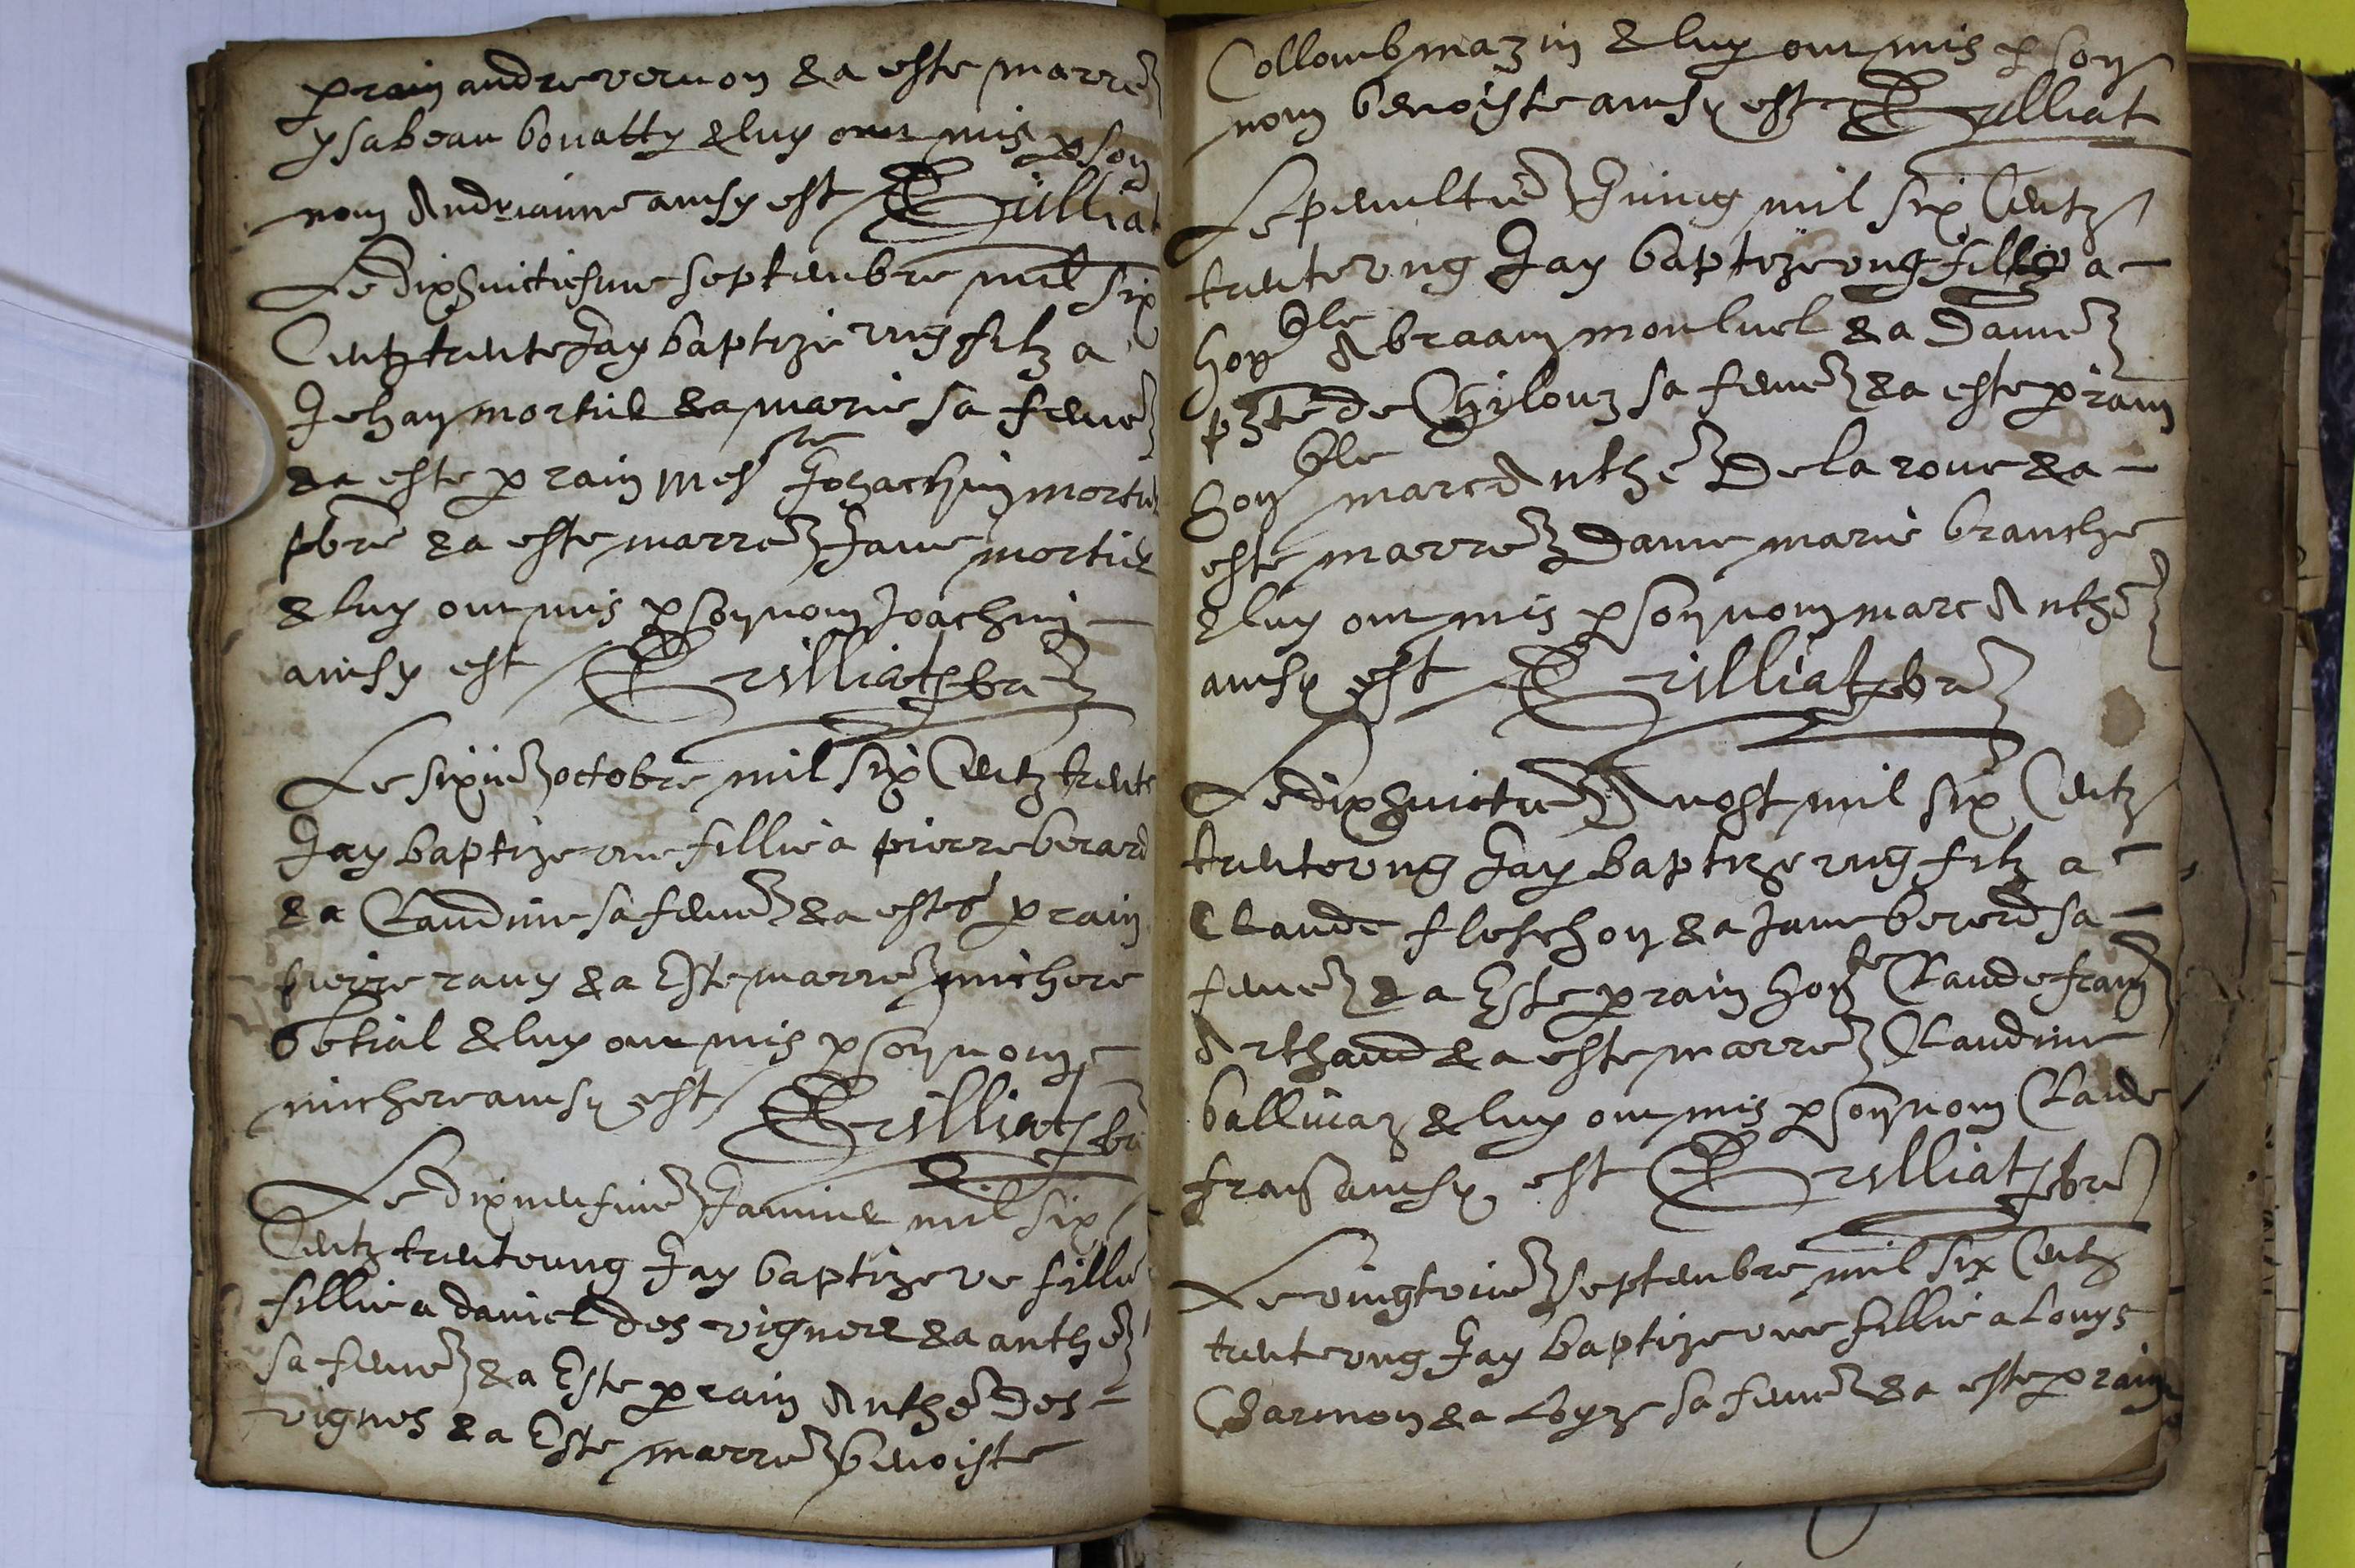 prain andre vernon & a este marre
ysabeau bonatty & luy ont mis p son
nom Andrianne ainsy est Trilliat
Le dixhuictiesme septembre mil six
Centz trente Jay baptize ung filz a
Jehan mortier & a marie sa feme
& a este prain mess Johachin mortier
pbre & a este marre Jane mortier
& luy ont mis p son nom Joachin
ainsy est Trilliat pbre
Le sixie octobre mil six Centz trente
Jay baptize une fillie a pierre berard
& a Claudine sa feme & a este prain
pierre rauy & a Este marre michere
& luy ont mis p son nom
michere ainsy est Trilliat pbre
Le dixneufvie Janvier mil six
Centz trente ung Jay baptize ue fillie
fillie a daniel des vignes & a anthe
sa feme & a Este prain Anthe des
vignes & a Este marre benoiste
Collomb mazin & luy ont mis p son
nom benoiste ainsy est Trilliat
Le penultie Juing mil six Centz
trente ung Jay baptize ung fillz a
hon ble Abraam monluel & a Dame
de Chilouz sa feme & a este prain
hon ble marc Anthe De la roue & a
este marre Dame marie branche
& luy ont mis p son nom marc Anthe
ainsy est Trilliat pbre
Le dixhuictie Augst mil six Centz
trente ung Jay baptize ung filz a
Claude fleschon & a Jane bererd sa
feme & a Este prain hon Claude fran
Arthaud & a este marre Claudine
ballicaz & luy ont mis p son nom Claude
fran ainsy est Trilliat pbre
Le septembre mil six Centz
trente ung Jay baptize une fillie a Louys
Charmon & a Loyze sa feme & a este prain